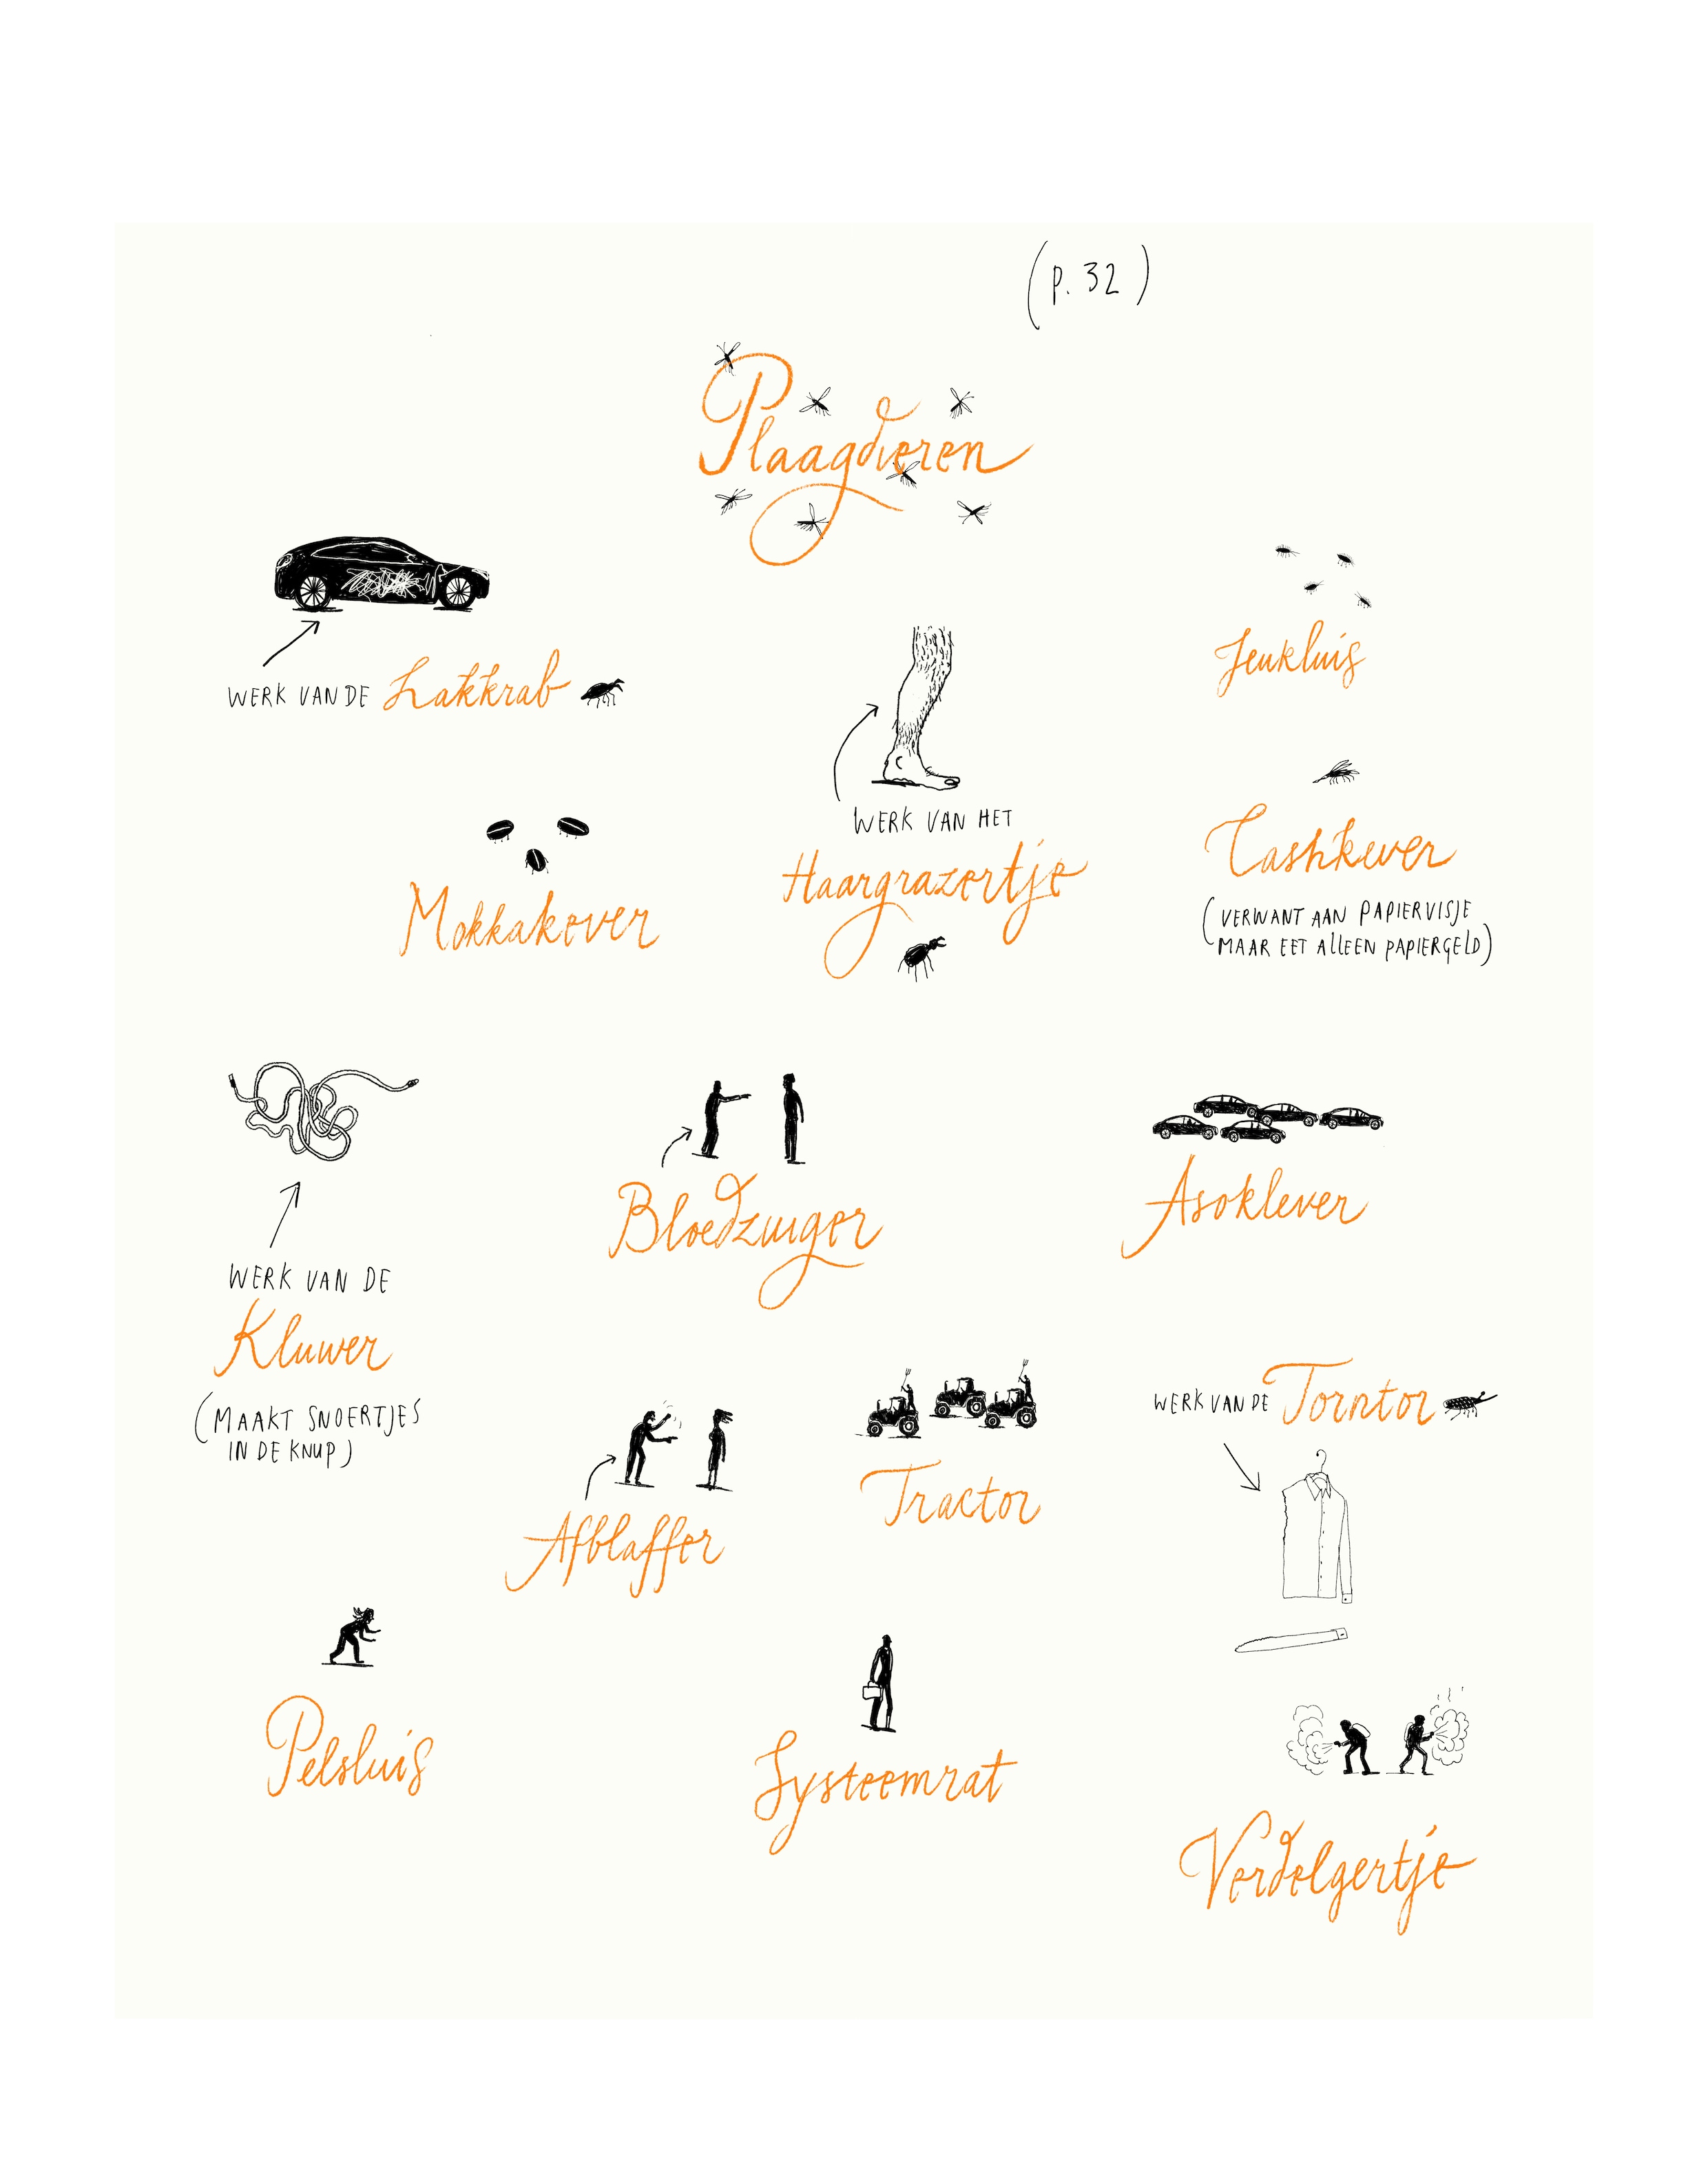 (P. 32)
Plaagdieren
WERK VAN DE Lakkrab
Jeukluis
WERK VAN HET
Haargrazertje
Mokkakever
Cashkever
(VERWANT AAN PAPIERVISJE
MAAR EET ALLEEN PAPIERGELD)
WERK VAN DE
Kluwer
(MAAKT SNOERTJES
IN DE KNUP)
Bloedzuiger
Asoklever
Afblaffer
Tractor
WERK VAN DE Torntor
Pelsluis
Systeemrat
Verdelgertje